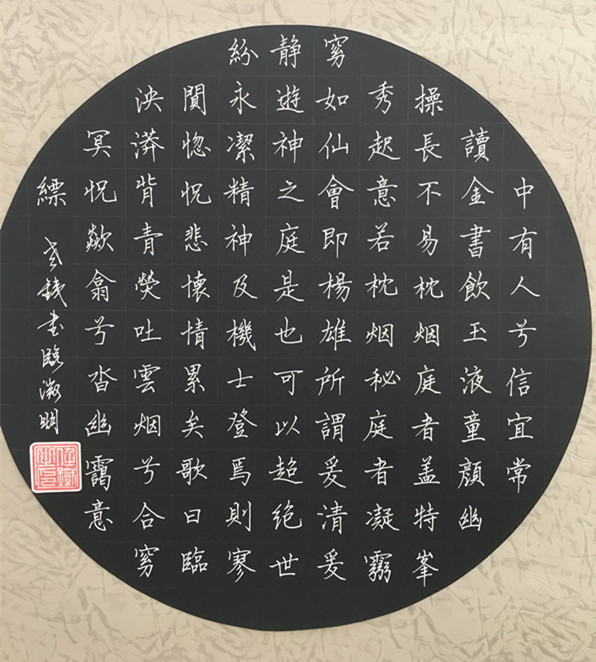 中有人兮信宜常
讀金書飲玉液童顏幽
操長不易枕烟庭者盖特峯
秀起意若枕烟秘庭者凝
如仙會即楊雄所謂爰清爰
静遊神之庭是也可以超绝世
紛永潔精神及機士登焉則寥
闃惚怳悲懷情累矣歌曰臨
泱漭背青熒吐雲烟兮合
冥怳欻翕兮沓幽靄意
縹
書臨